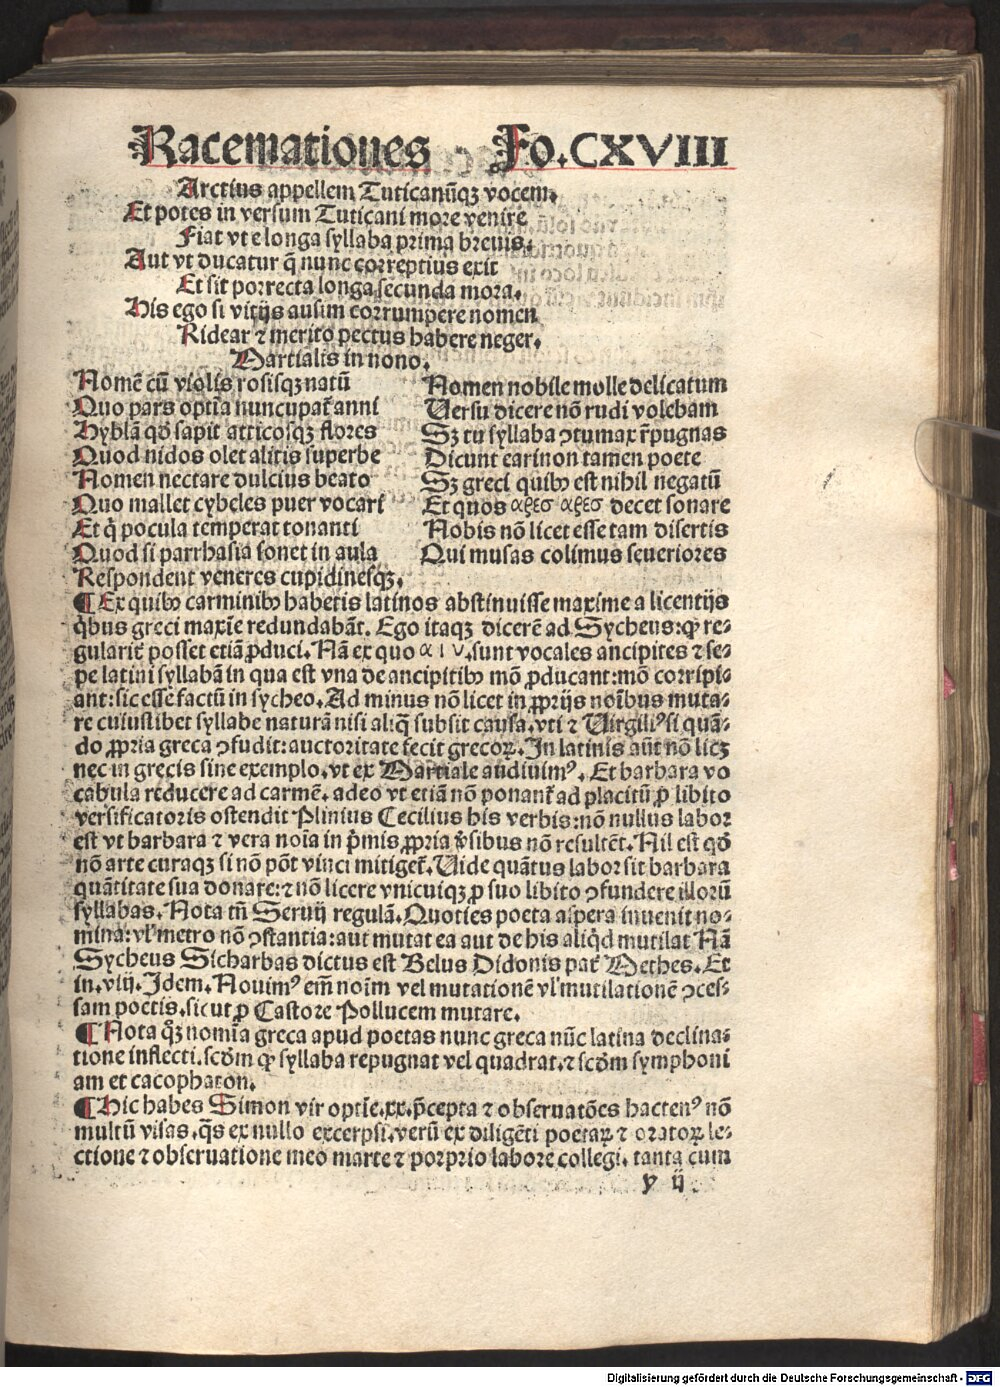 Racemationes Fo.CXVIII
Arctius appellem Tuticanũqꝫ vocem.
Et potes in versum Tuticani more venire
Fiat vt e longa syllaba prima breuis.
Aut vt ducatur q̃ nunc correptius exit
Et sit porrecta longa secunda mora.
His ego si vitijs ausim corrumpere nomen
Ridear ⁊ merito pectus habere neger.
Martialis in nono.
Nomẽ cũ violis rosisqꝫ natũ
Quo pars optĩa nuncupat᷑ anni
Hyblã qđ sapit atticosqꝫ flores
Quod nidos olet alitis superbe
Nomen nectare dulcius beato
Quo mallet cybeles puer vocari
Et q̇ pocula temperat tonanti
Quod si parrhasia sonet in aula
Respondent veneres cupidinesqꝫ.
Nomen nobile molle delicatum
Uersu dicere nõ rudi volebam
Sꝫ tu syllaba ꝯtumax r̃pugnas
Dicunt earinon tamen poete
Sꝫ greci quibꝰ est nihil negatũ
Et quos αρεσ αρεσ decet sonare
Nobis nõ licet esse tam disertis
Qui musas colimus seueriores
¶ Ex quibꝰ carminibꝰ habetis latinos abstinuisse maxime a licentijs
q̇bus greci maxĩe redundabãt. Ego itaqꝫ dicerẽ ad Sycheus: qꝙ re⸗
gularit᷑ posset etiã ꝓduci. Nã ex quo α ι υ. sunt vocales ancipites ⁊ se⸗
pe latini syllabã in qua est vna de ancipitibꝰ mõ ꝓducant: mõ corripi⸗
ant: sic esse factũ in sycheo. Ad minus nõ licet in ꝓprijs noĩbus muta⸗
re cuiuslibet syllabe naturã nisi aliq̃ subsit causa. vti ⁊ Uirgiliꝰ si quã⸗
do ꝓpria greca ꝯfudit: auctoritate fecit grecoꝝ. In latinis aũt nõ licꝫ
nec in grecis sine exemplo. vt ex Martiale audiuimꝰ. Et barbara vo
cabula reducere ad carmẽ. adeo vt etiã nõ ponant᷑ ad placitũ ꝑ libito
versificatoris ostendit Plinius Cecilius his verbis: nõ nullus labor
est vt barbara ⁊ vera noĩa in p̃mis ꝓpria v̾sibus nõ resultẽt. Nil est qđ
nõ arte curaqꝫ si nõ põt vinci mitiget᷑. Uide quãtus labor sit barbara
quãtitate sua donare: ⁊ nõ licere vnicuiqꝫ ꝓ suo libito ꝯfundere illorũ
syllabas. Nota tñ Seruij regulã. Quoties poeta aspera inuenit no⸗
mina: vl̓ metro nõ ꝯstantia: aut mutat ea aut de his aliq̇d mutilat Nã
Sycheus Sicharbas dictus est Belus Didonis pat᷑ Methes. Et
in. viij. Idem. Nouimꝰ em̃ noĩm vel mutationẽ vl̓ mutilationẽ ꝯces⸗
sam poetis. sicut ꝓ Castore Pollucem mutare.
¶ Nota q̊ꝫ nomĩa greca apud poetas nunc greca nũc latina declina⸗
tione inflecti. scđm qꝙ syllaba repugnat vel quadrat. ⁊ scđm symphoni
am et cacophaton.
¶ Hic habes Simon vir optĩe. xx. p̃cepta ⁊ obseruatões hactenꝰ nõ
multũ visas. q̃s ex nullo excerpsi. verũ ex diligẽti poetaꝝ ⁊ oratoꝝ le⸗
ctione ⁊ obseruatione meo marte ⁊ porprio labore collegi. tanta cum
y ij
Digitalisierung gefördert durch die Deutsche Forschungsgemeinschaft - DFG